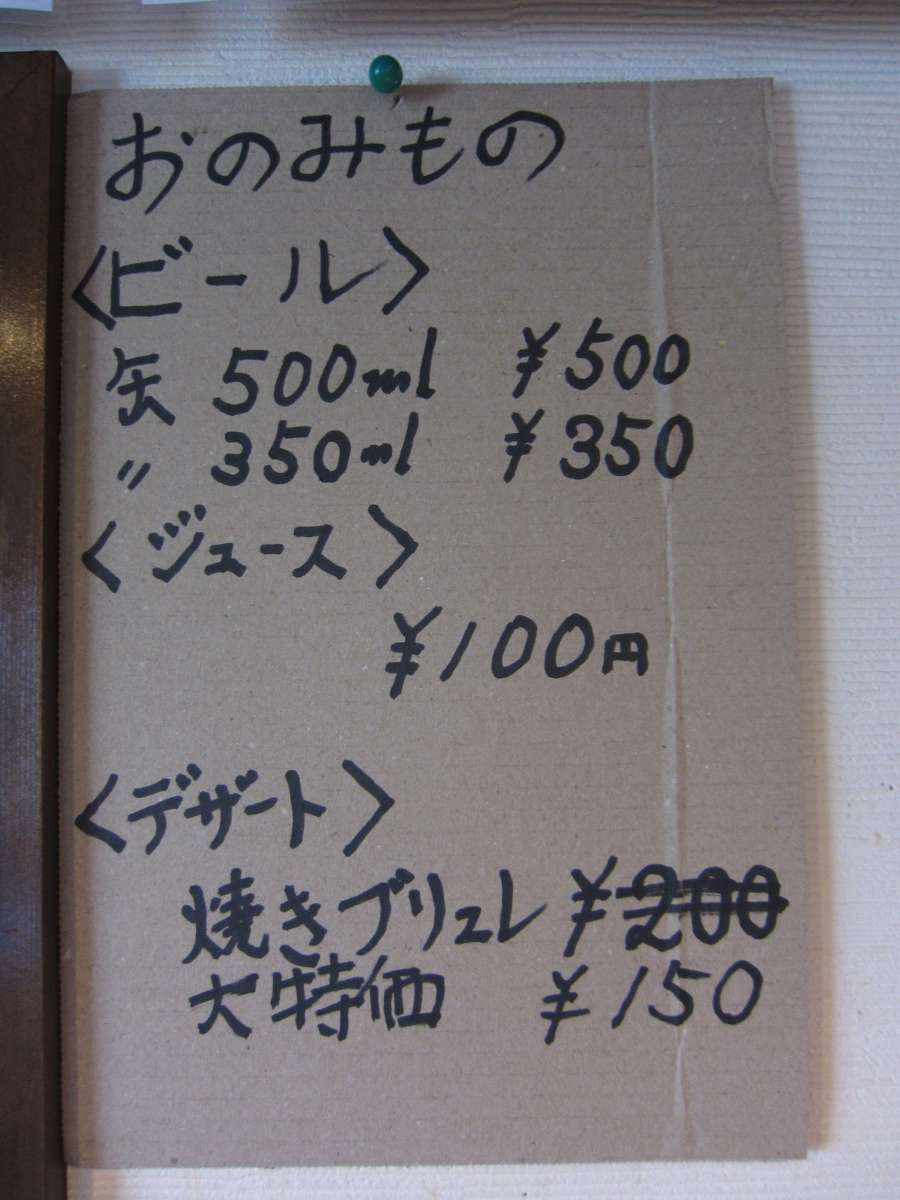 おのみもの
〈ビール〉
缶 500ml ¥500
〃 350ml ¥350
〈ジュース〉
¥100円
〈デザート〉
焼きブリュレ ¥200
大特価 ¥150